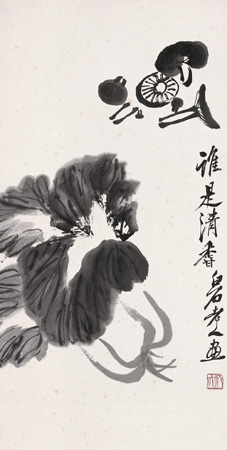 誰是清香白石老人畫